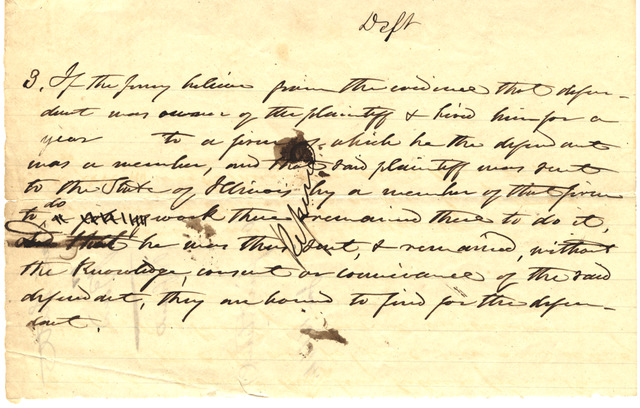 Deft
3. If the jury believe from the evidence that defen-
dant was owner of the plaintiff & hired him for a
year to a firm of which he the defendant
was a member, and that said plaintiff was sent
to the State of Illinois by a member of that firm
to do work there & remained there to do it,
and that he was thus sent, & remained, without
the Knowledge, consent or connivance of the said
defendant, they are bound to find for the defen-
dant.
Refused